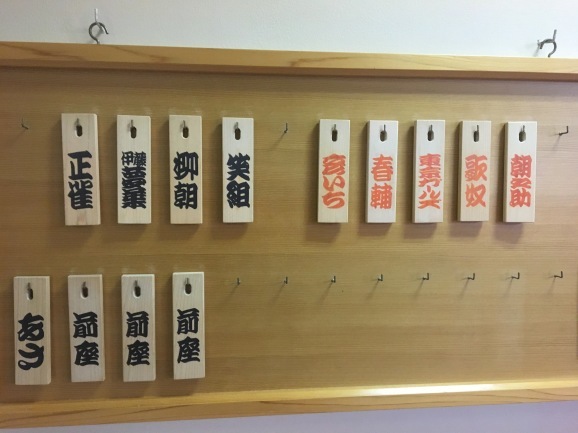 朝之助
歌奴
春輔
彦いち
笑組
柳朝
伊藤夢葉
正雀
前座
前座
前座